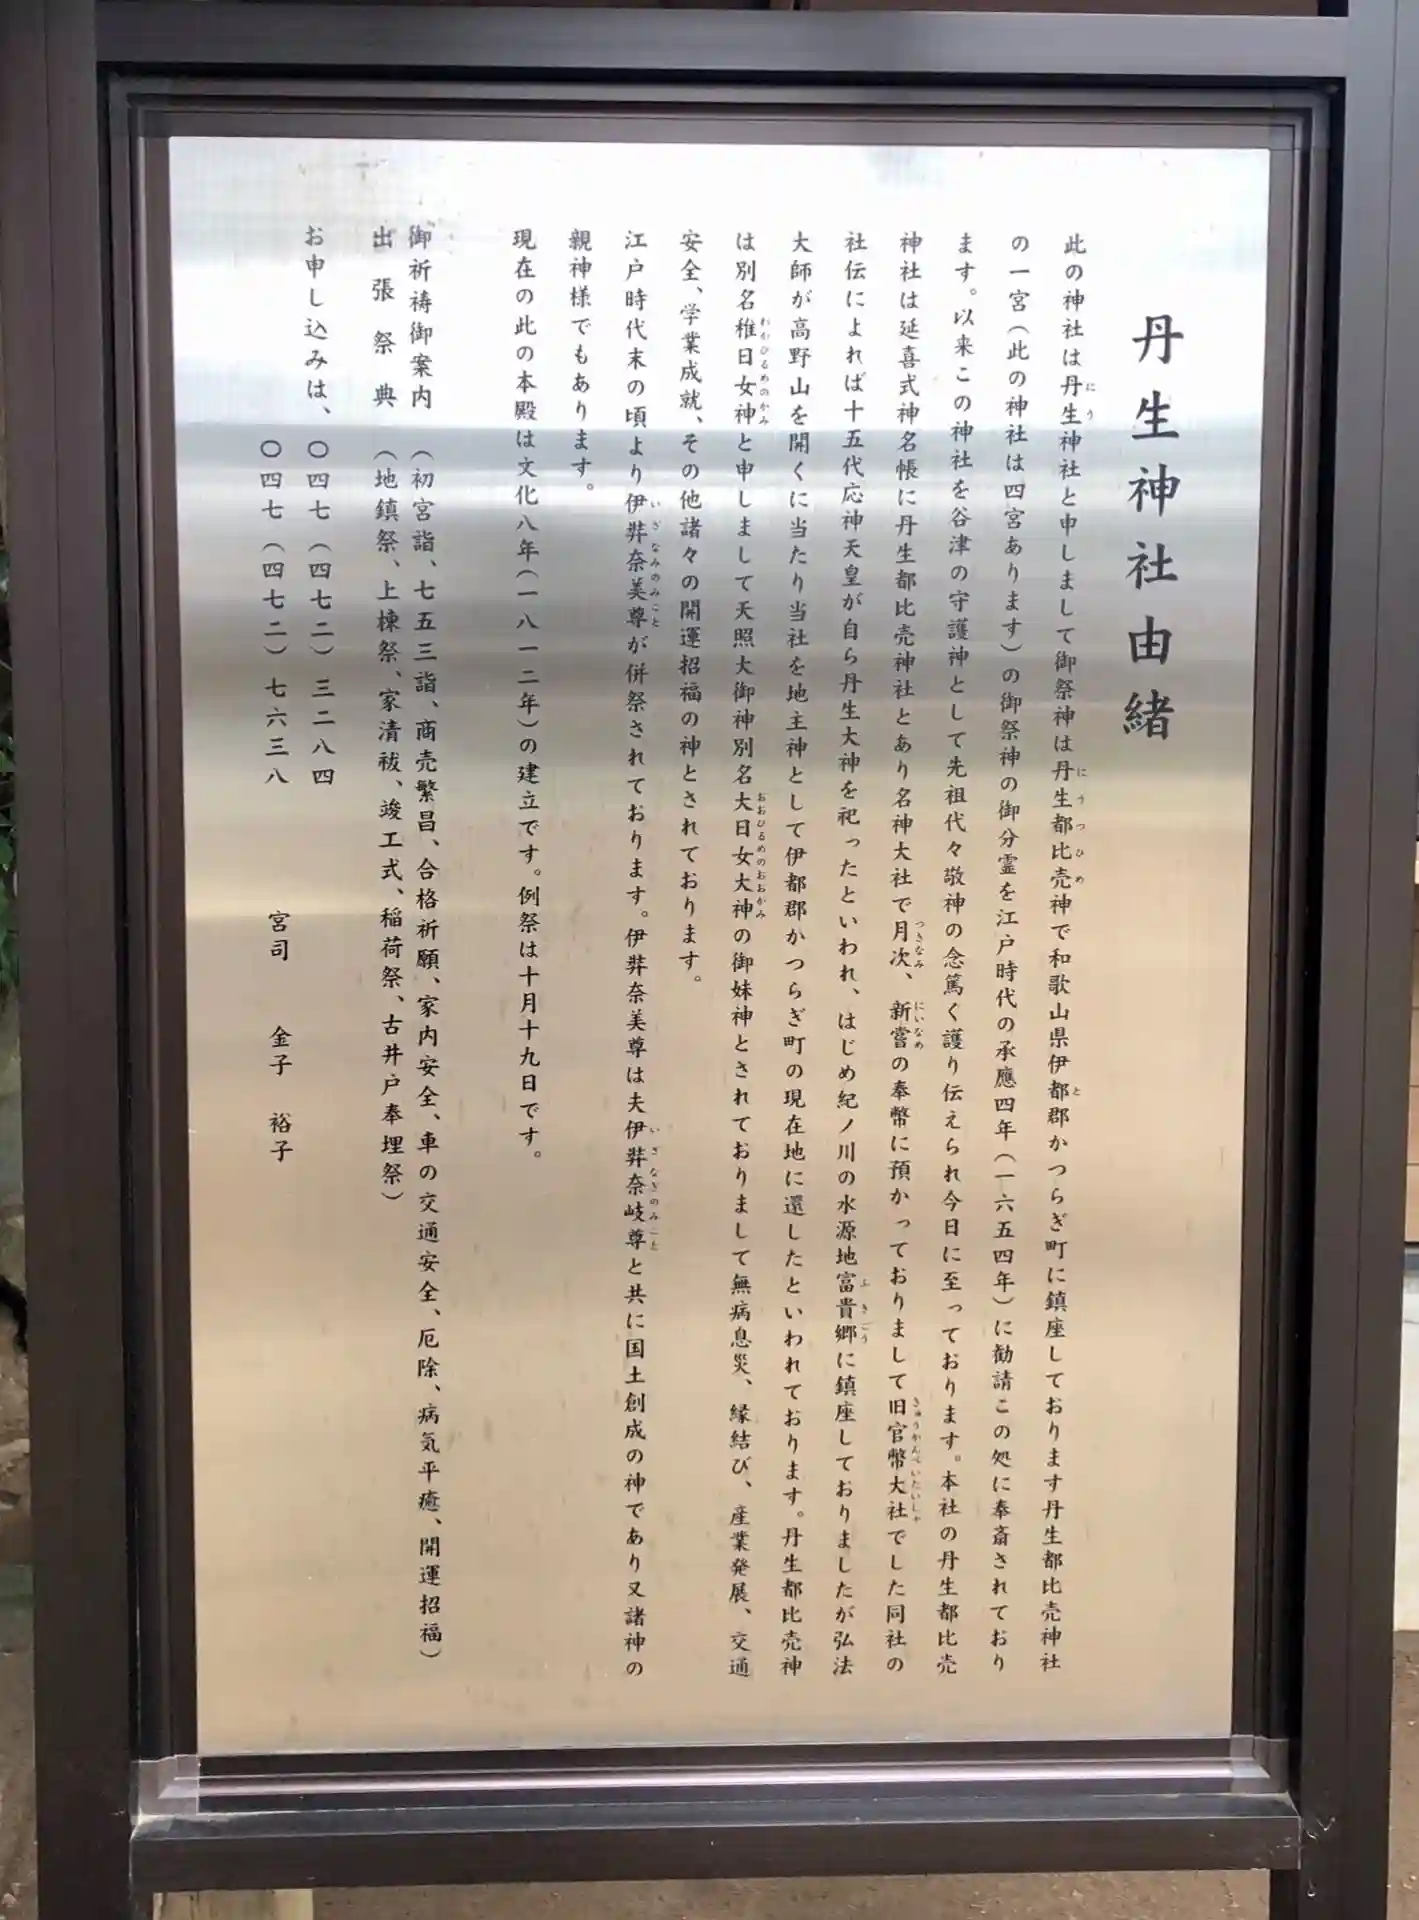 丹生神社由緒
此の神社は丹生神社と申しまして御祭神は丹生都比売神で和歌山県伊都郡かつらぎ町に鎮座しております丹生都比売神社
の一宮(此の神社は四宮あります)の御祭神の御分霊を江戸時代の承應四年(一六五四年)に勧請この処に奉斎されており
ます。以来この神社を谷津の守護神として先祖代々敬神の念篤く護り伝えられ今日に至っております。本社の丹生都比売
神社は延喜式神名帳に丹生都比売神社とあり名神大社で月次、新嘗の奉幣に預かっておりまして旧官幣大社でした同社の
社伝によれば十五代応神天皇が自ら丹生大神を祀ったといわれ、はじめ紀ノ川の水源地富貴郷に鎮座しておりましたが弘法
大師が高野山を開くに当たり当社を地主神として伊都郡かつらぎ町の現在地に還したといわれております。丹生都比売神
は別名稚日女神と申しまして天照大御神別名大日女大神の御妹神とされておりまして無病息災、縁結び、産業発展、交通
安全、学業成就、その他諸々の開運招福の神とされております。
江戸時代末の頃より伊弉奈美尊が併祭されております。伊弉奈美尊は夫伊弉奈岐尊と共に国土創成の神であり又諸神の
親神様でもあります。
現在の此の本殿は文化八年(一八一二年)の建立です。例祭は十月十九日です。
御祈祷御案内(初宮詣、七五三詣、商売繁昌、合格祈願、家内安全、車の交通安全、厄除、病気平癒、開運招福)
出張祭典(地鎮祭、上棟祭、家清祓、竣工式、稲荷祭、古井戸奉埋祭)
お申し込みは、〇四七(四七二)三二八四
〇四七(四七二)七六三八 宮司 金子 裕子